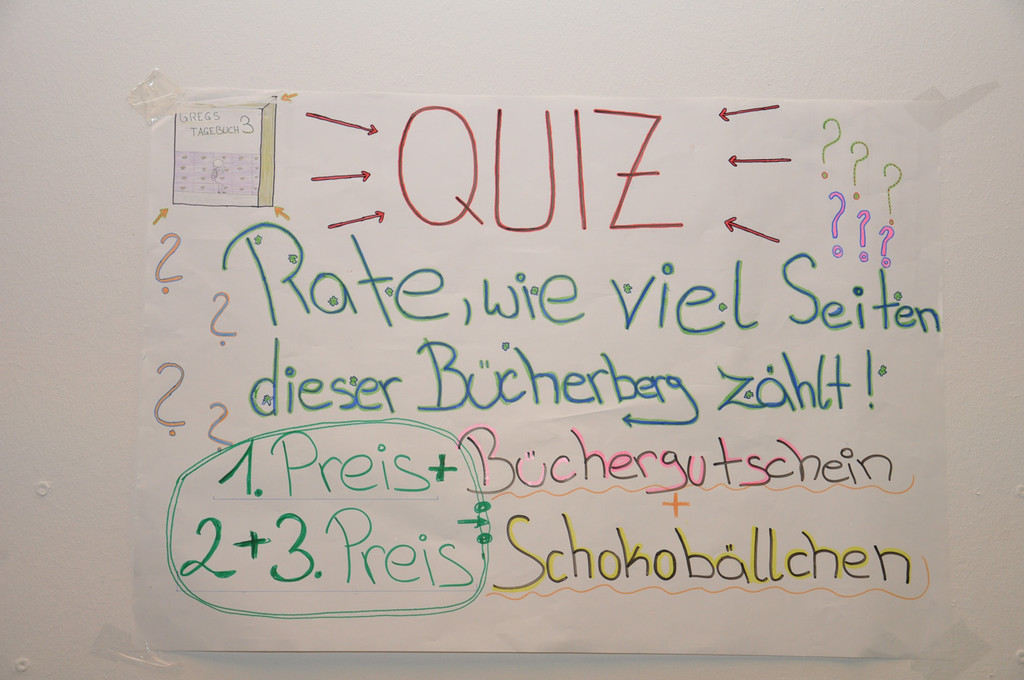 GREGS
TAGEBUCH 3
QUIZ
Rate, wie viel Seiten
dieser Bücherberg zählt!
1. Preis + Büchergutschein
+
2+3. Preis : Schokobällchen